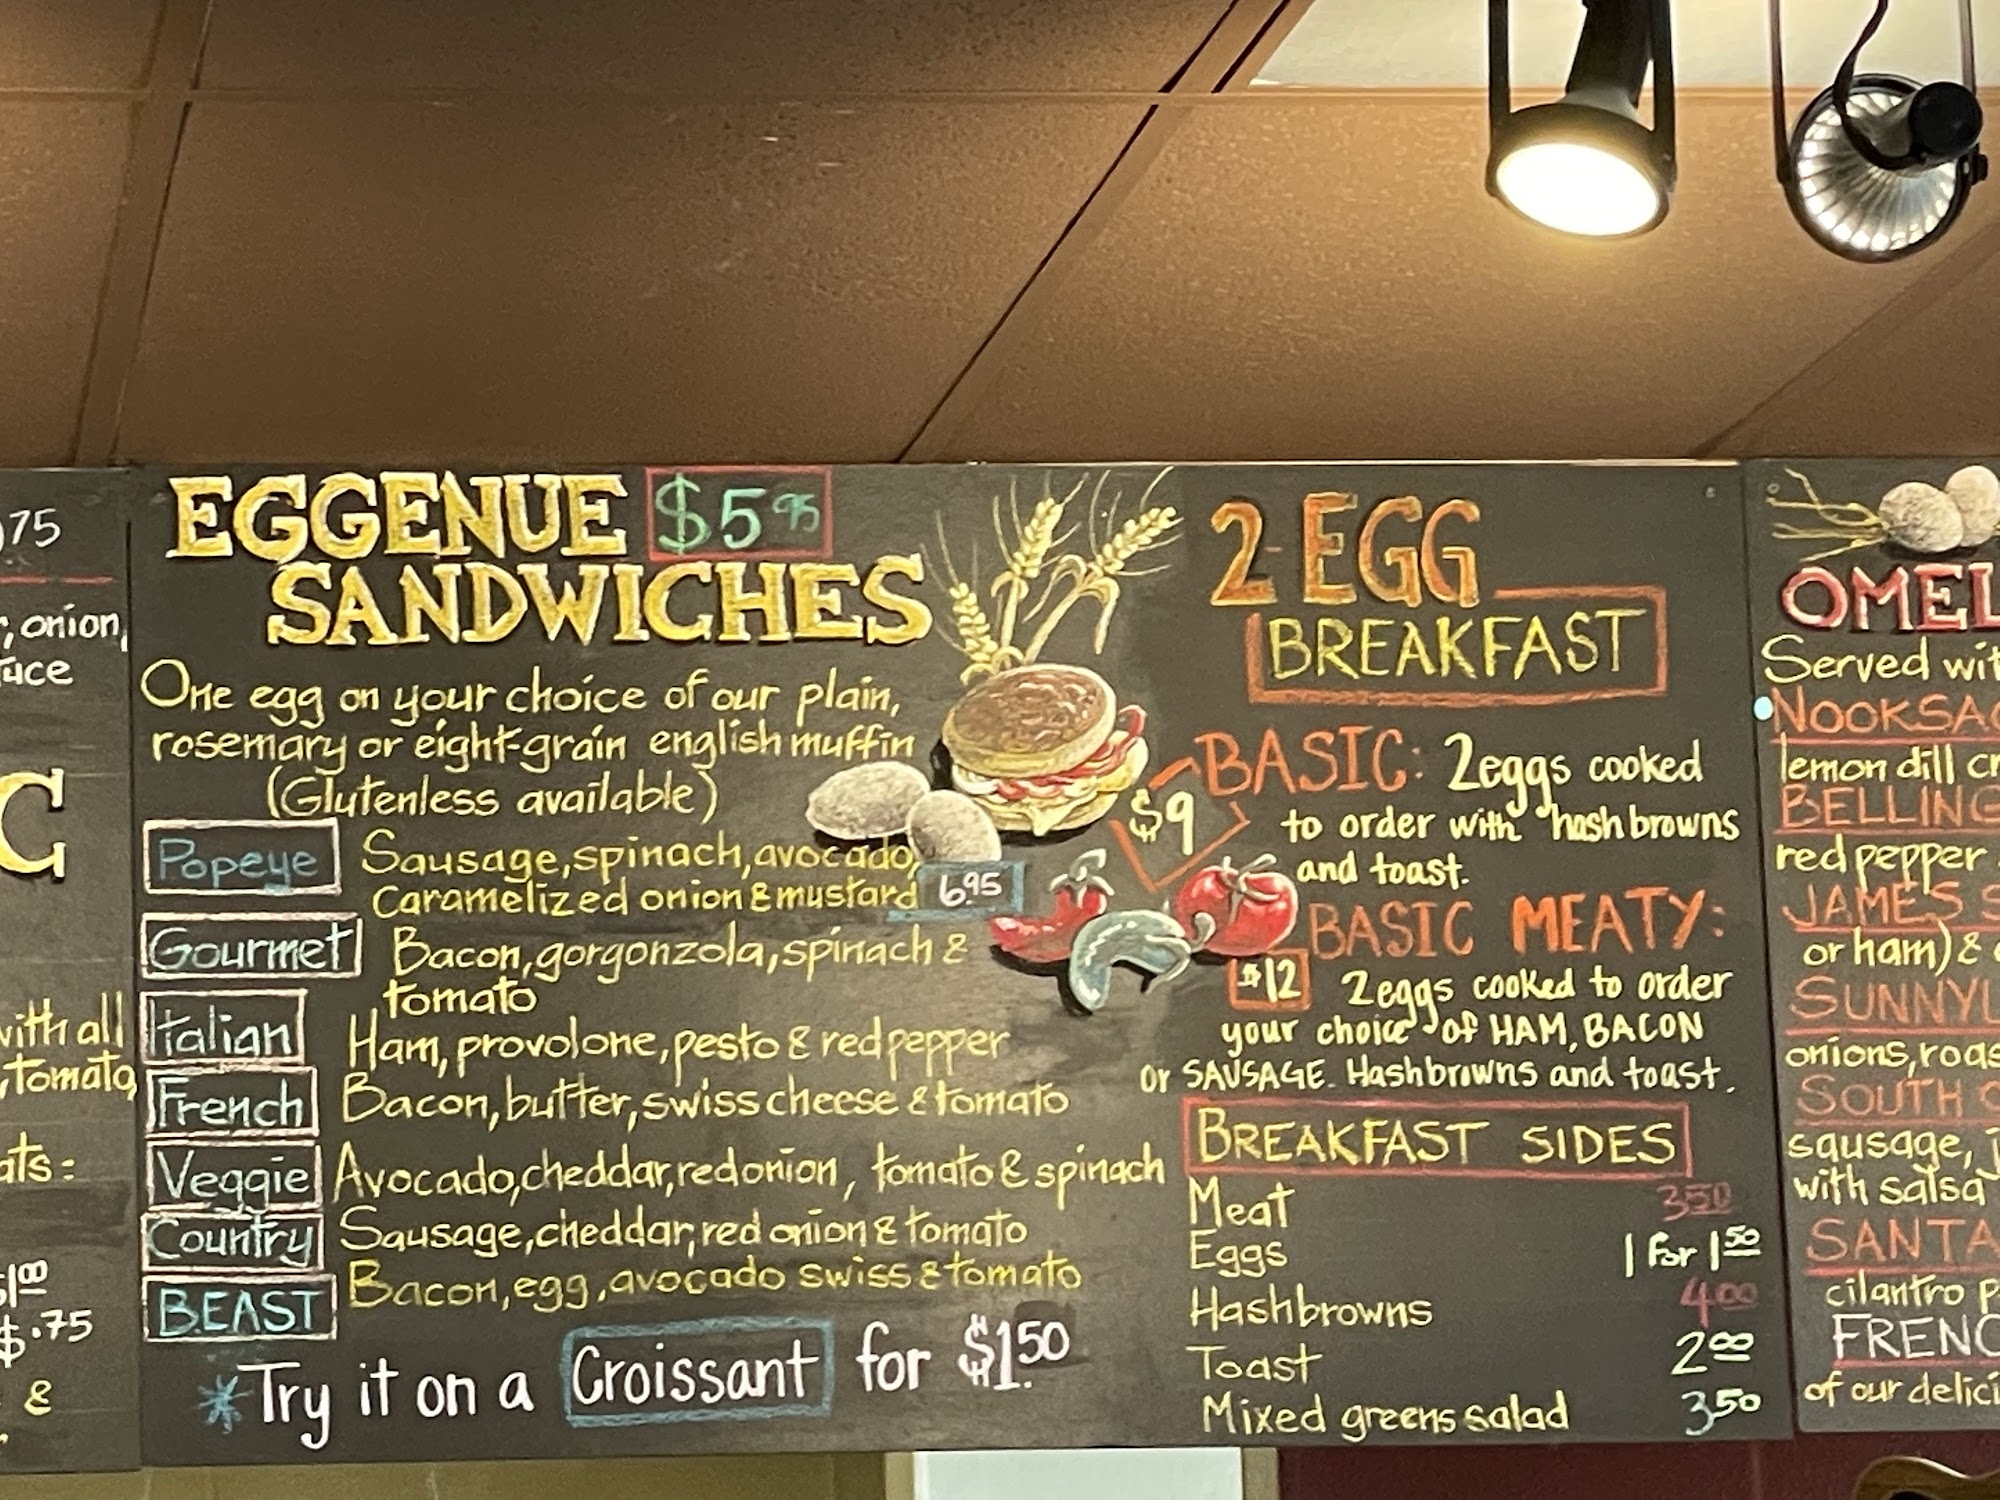 75
onion,
with all
tomato,
$.75
&
EGGENUE $5.95
SANDWICHES
One egg on your choice of our plain,
rosemary or eight-grain english muffin
(Glutenless available)
Popeye Sausage, spinach, avocado,
Caramelized onion & mustard 6.95
Gourmet Bacon, gorgonzola, spinach &
tomato
Italian Ham, provolone, pesto & red pepper
French Bacon, butter, swiss cheese & tomato
Veggie Avocado, cheddar, red onion, tomato & spinach
Country Sausage, cheddar, red onion & tomato
B.EAST Bacon, egg, avocado swiss & tomato
*Try it on a Croissant for $1.50
2 EGG
BREAKFAST
BASIC: 2 eggs cooked
$9 to order with hashbrowns
and toast.
BASIC MEATY:
$12 2 eggs cooked to order
your choice of HAM, BACON
or SAUSAGE. Hashbrowns and toast.
BREAKFAST SIDES
Meat 3.50
Eggs 1 for 1.50
Hashbrowns 4.00
Toast 2.00
Mixed greens salad 3.50
OMEL
Served wit
NOOKSAC
lemon dill cr
BELLING
red pepper
JAMES S
or ham) &
SUNNYL
onions, roas
SOUTH
sausage,
with salsa
SANTA
cilantro p
FRENC
of our delici